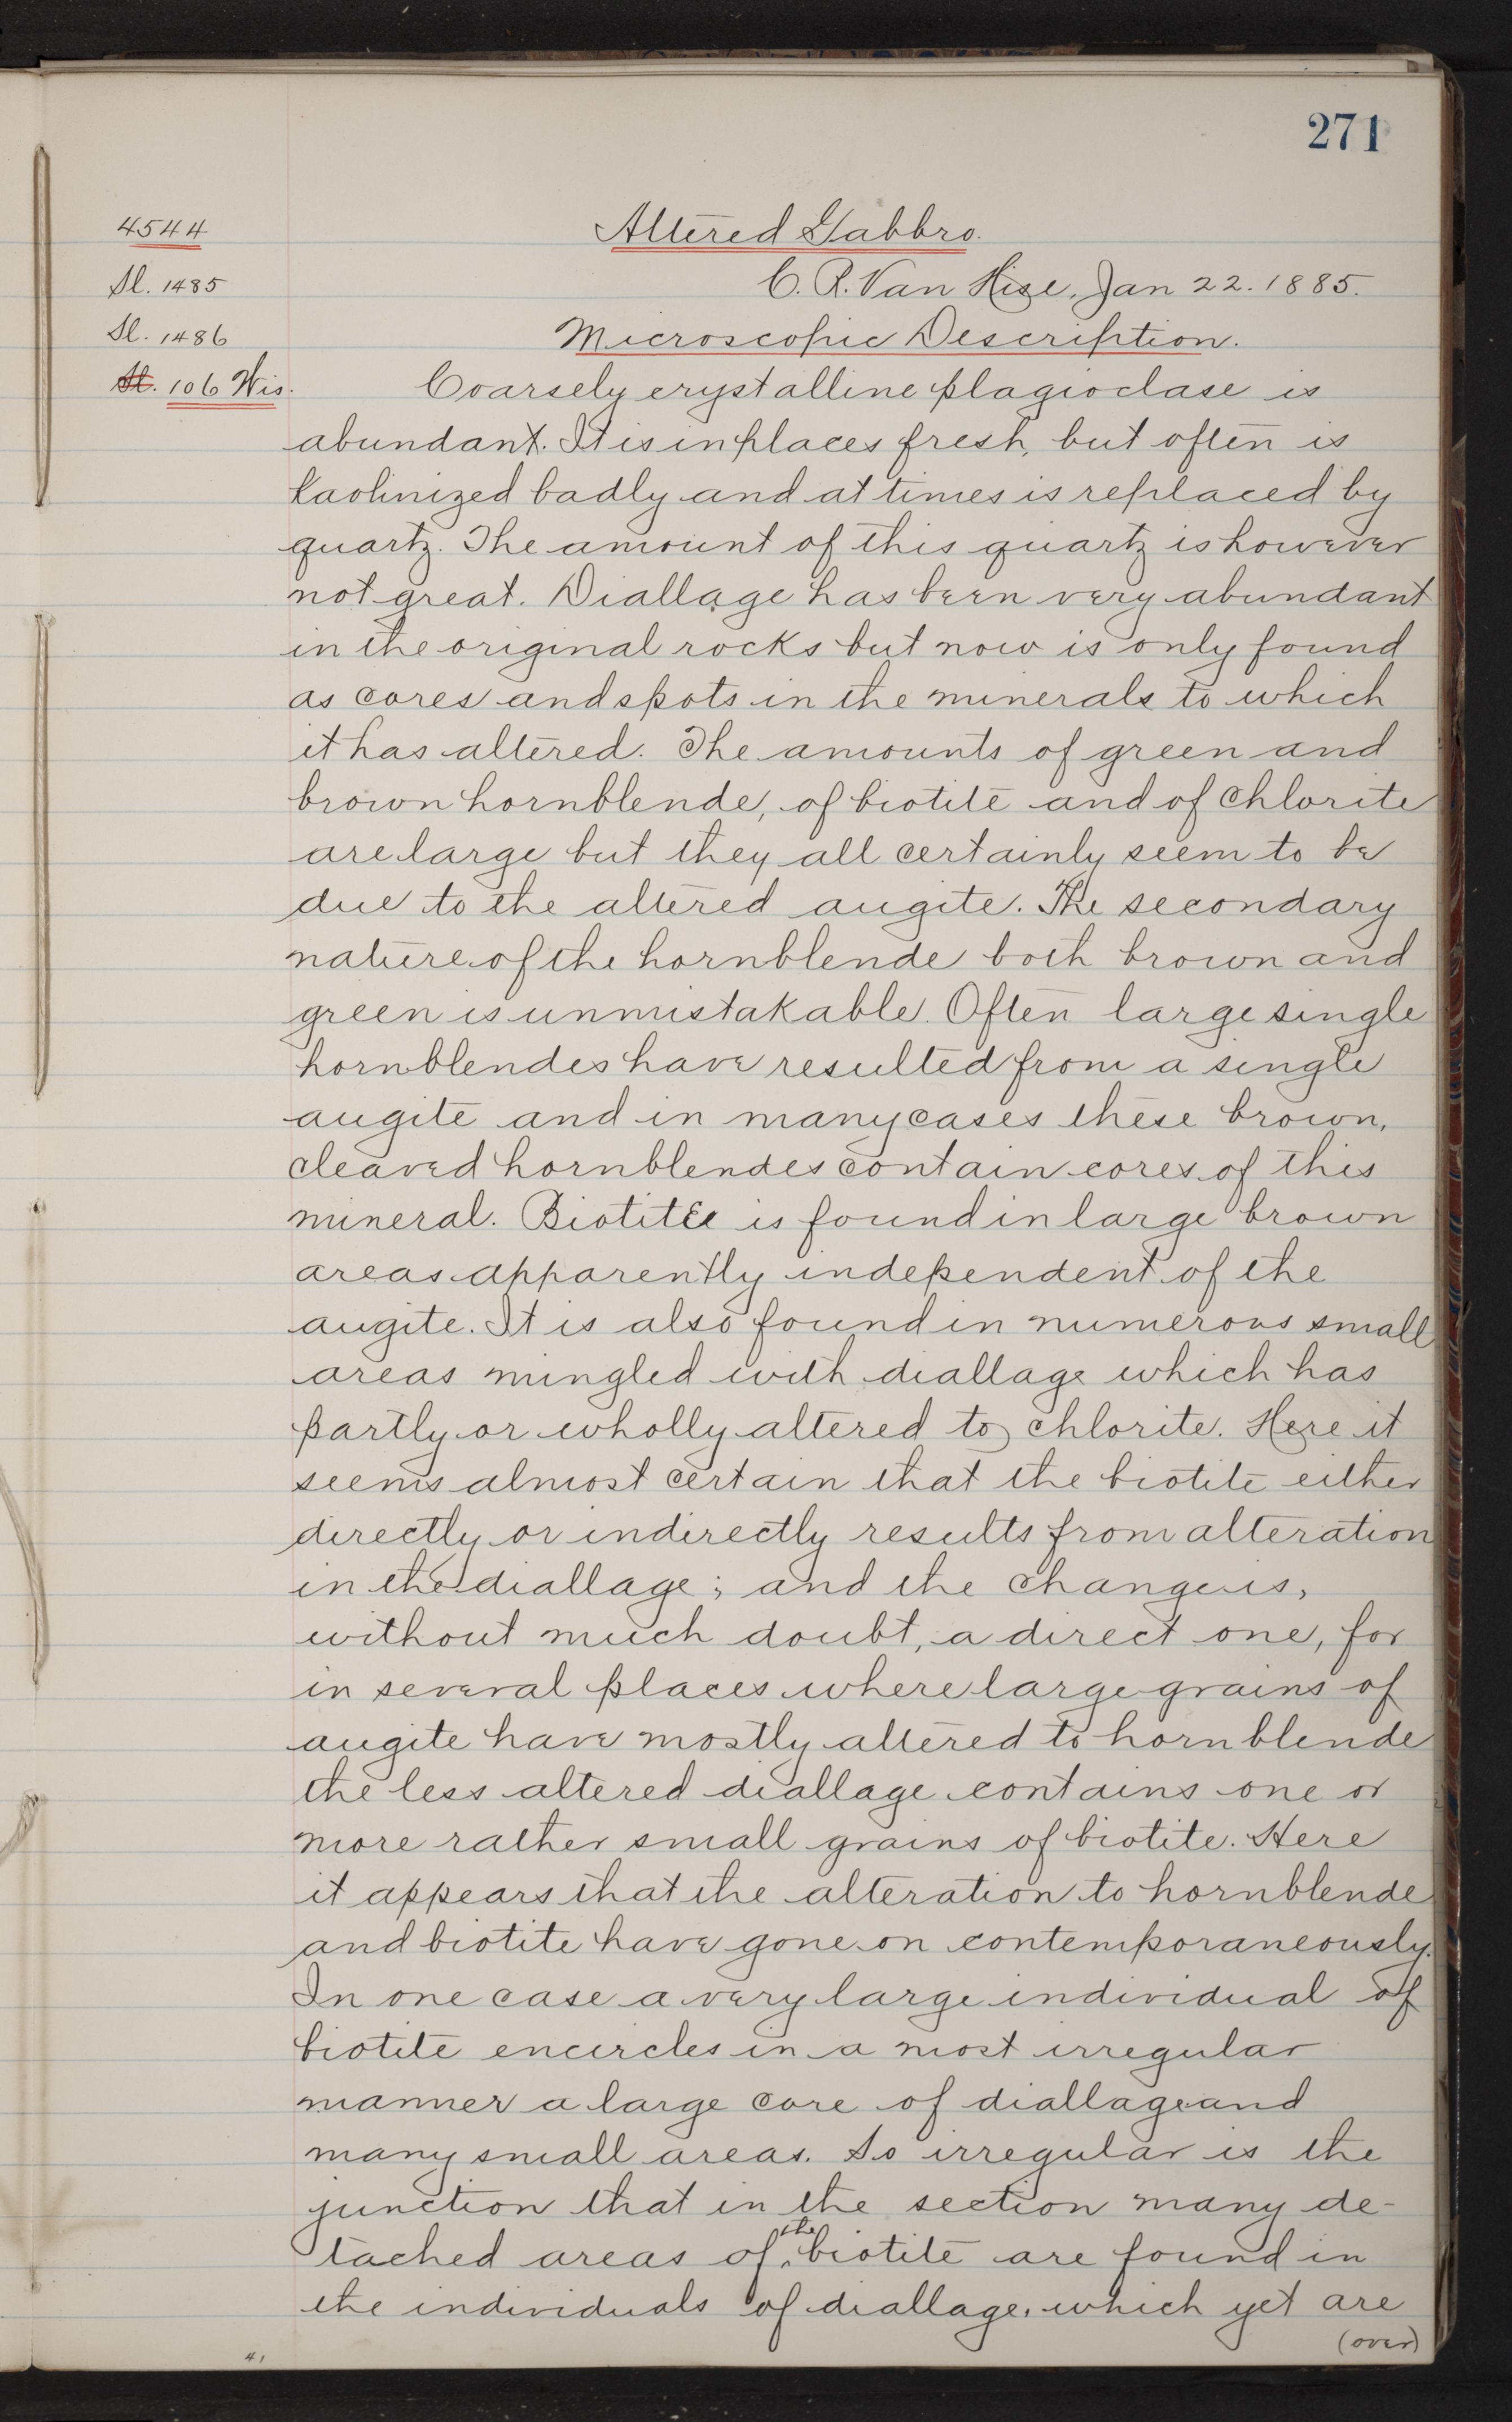 271
4544
Altered Gabbro.
Sl. 1485
C. R. Van Hise, Jan 22. 1885.
Sl. 1486
Microscopic Description.
Sl. 106 Wis.
Coarsely crystalline plagioclase is
abundant. It is in places fresh, but often is
kaolinized badly and at times is replaced by
quartz. The amount of this quartz is however
not great. Diallage has been very abundant
in the original rocks but now is only found
as cores and spots in the minerals to which
it has altered. The amounts of green and
brown hornblende, of biotite and of chlorite
are large but they all certainly seem to be
due to the altered augite. The secondary
nature of the hornblende both brown and
green is unmistakable. Often large single
hornblendes have resulted from a single
augite and in many cases these brown,
cleaved hornblendes contain cores of this
mineral. Biotite is found in large brown
areas apparently independent of the
augite. It is also found in numerous small
areas mingled with diallage which has
partly or wholly altered to chlorite. Here it
seems almost certain that the biotite either
directly or indirectly results from alteration
in the diallage; and the change is,
without much doubt, a direct one, for
in several places where large grains of
augite have mostly altered to hornblende
the less altered diallage contains one or
more rather small grains of biotite. Here
it appears that the alteration to hornblende
and biotite have gone on contemporaneously.
In one case a very large individual of
biotite encircles in a most irregular
manner a large core of diallage and
many small areas. So irregular is the
junction that in the section many de-
tached areas of the biotite are found in
the individuals of diallage, which yet are
(over)
41